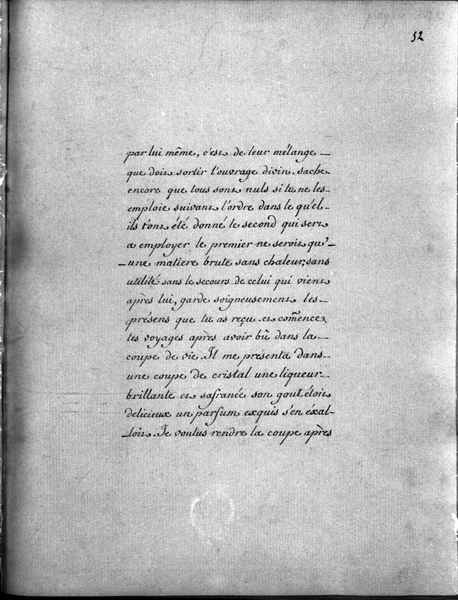 52
par lui même, c'est de leur mélange
que doit sortir l'ouvrage divin. sache
encore que tous sont nuls si tu ne les
emploie suivant l'ordre dans le qu'el
ils t'ont été donné le second qui sert
a employer le premier ne seroit qu'
une matiere brute sans chaleur, sans
utilité sans le secours de celui qui vient
après lui, garde soigneusement les
présens que tu as reçu et com̄ence
tes voyages après avoir bû dans la
coupe de vie. Il me présenta dans
une coupe de cristal une liqueur
brillante et safranée son gout étoit
delicieux un parfum exquis s'en éxal-
loit. Je voulus rendre la coupe après